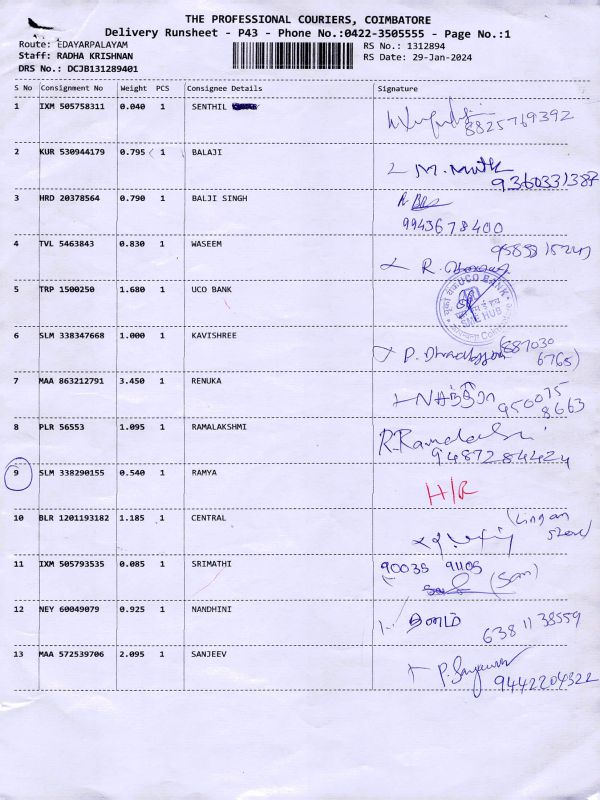 THE PROFESSIONAL COURIERS, COIMBATORE
Delivery Runsheet - P43 - Phone No.:0422-3505555 - Page No.:1
Route: EDAYARPALAYAM
Staff: RADHA KRISHNAN
DRS No.: DCJB131289401
RS No.: 1312894
RS Date: 29-Jan-2024
S No Consignment No Weight PCS Consignee Details Signature
1 IXM 505758311 0.040 1 SENTHIL
8825769392
2 KUR 530944179 0.795 1 BALAJI
9360331387
3 HRD 20378564 0.790 1 BALJI SINGH
9943678400
4 TVL 5463843 0.830 1 WASEEM
5 TRP 1500250 1.680 1 UCO BANK
UCO BANK
SME HUB
6 SLM 338347668 1.000 1 KAVISHREE
(887030
6765)
7 MAA 863212791 3.450 1 RENUKA
950075
8663
8 PLR 56553 1.095 1 RAMALAKSHMI
9487284424
9 SLM 338290155 0.540 1 RAMYA H/R
10 BLR 1201193182 1.185 1 CENTRAL
11 IXM 505793535 0.085 1 SRIMATHI
(Sam)
12 NEY 60049079 0.925 1 NANDHINI
638 11 38559
13 MAA 572539706 2.095 1 SANJEEV
9442204322